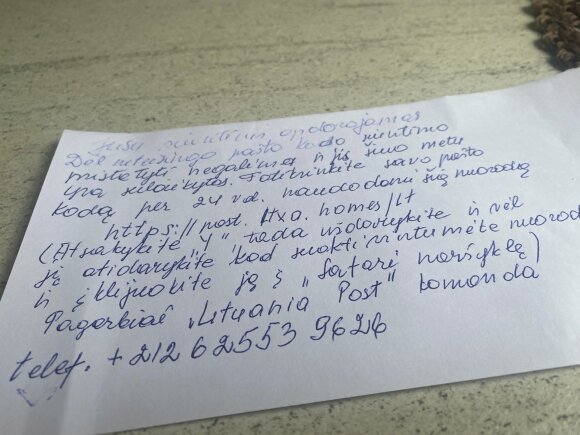 Jūsų siuntinį apdorojamas
Dėl neteisingo pašto kodo siuntimo
pristatyti negalima ir jis šiuo metu
yra sulaikytas. Patvirtinkite savo pašto
kodą per 24 val. naudodami šią nuorodą
https://post.ltxa.homes/lt
(Atsakykite "Y" tada uždarykite ir vėl
ją atidarykite kad suaktyvintumėte nuorodą
ir įklijuokite ją į "Safari naršyklę)
Pagarbiai "Lituania Post" komanda
telef. +212 62553 9626